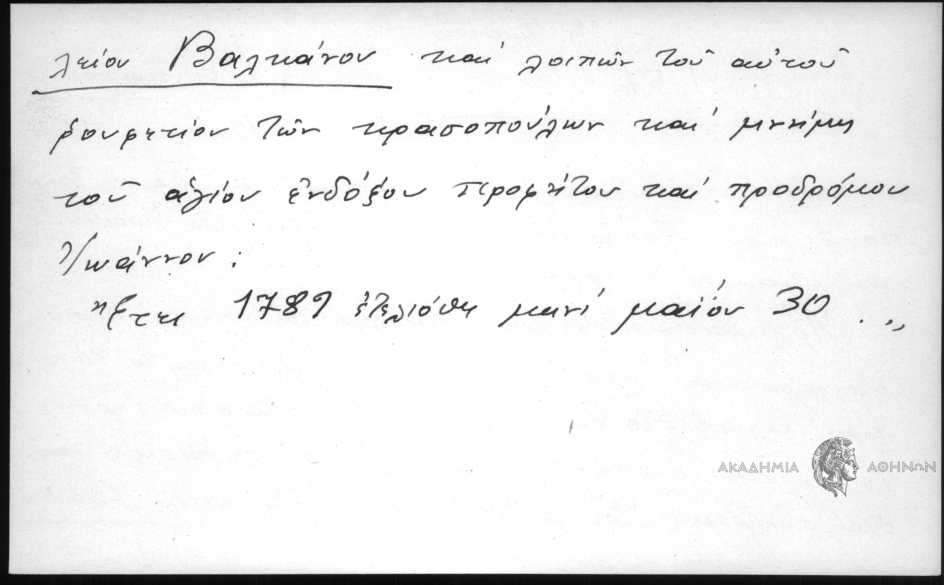 λείου Βαλκάνου καί λοιπῶν τοῦ αὐτοῦ
ρουφετίου τῶν κρασοπούλων καί μνήμη
τοῦ ἁγίου ἐνδόξου προφήτου καί προδρόμου
Ἰωάννου :
ἔτει 1789 ἐτελιόθη μηνί μαΐου 30 . „
ΑΚΑΔΗΜΙΑ ΑΘΗΝΩΝ